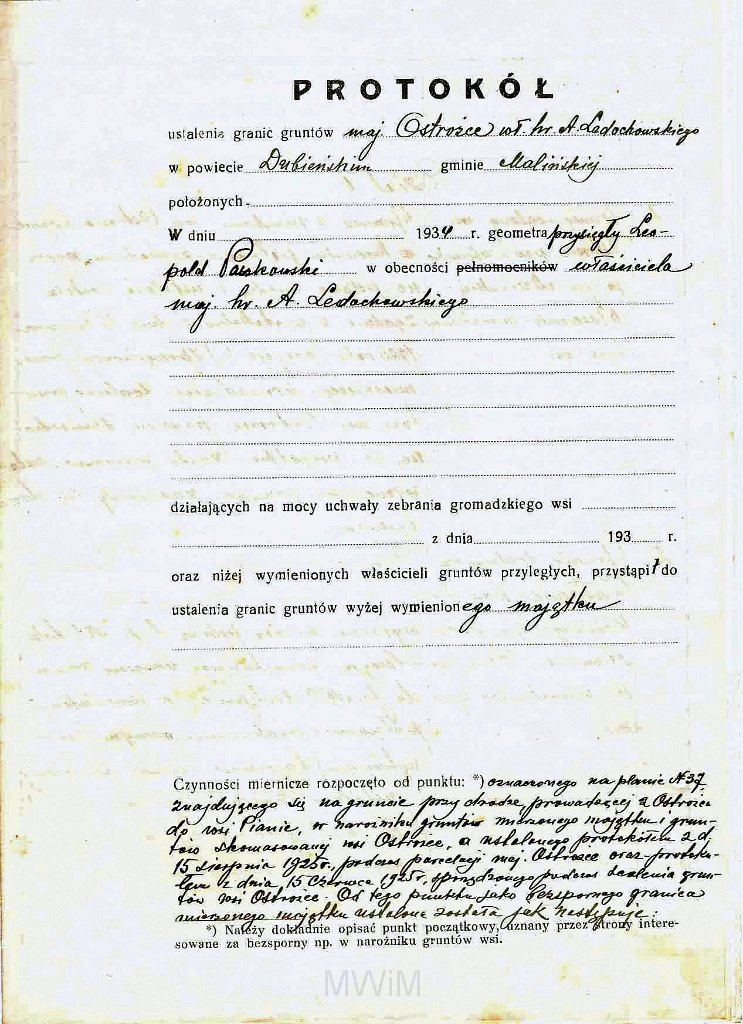 PROTOKÓŁ
ustalenia granic gruntów maj. Ostrożce wł. hr. A. Ledochowskiego
w powiecie Dubieńskim gminie Malińskiej
położonych
W dniu 1934 r. geometra przysięgły Leo-
pold Paszkowski w obecności pełnomocników właściciela
maj. hr. A. Ledochowskiego
działających na mocy uchwały zebrania gromadzkiego wsi
z dnia 193 r.
oraz niżej wymienionych właścicieli gruntów przyległych, przystąpił do
ustalenia granic gruntów wyżej wymienionego majątku
Czynności miernicze rozpoczęto od punktu: *) oznaczonego na planie N 37
znajdującego się na gruncie przy drodze, prowadzącej z Ostrożca
do wsi Pianie, w narożniku gruntów mierzonego majątku i grun-
tów skomasowanej wsi Ostrożec, a ustalonego protokółem z d.
15 sierpnia 1925 r., podczas parcelacji maj. Ostrożce oraz protokó-
łem z dnia 15 czerwca 1925 r. sporządzonego podczas scalenia grun-
tów wsi Ostrożec. Od tego punktu jako bezspornego granica
mierzonego majątku ustalona została jak następuje:
*) Należy dokładnie opisać punkt początkowy, uznany przez strony intere-
sowane za bezsporny np. w narożniku gruntów wsi.
MWiM